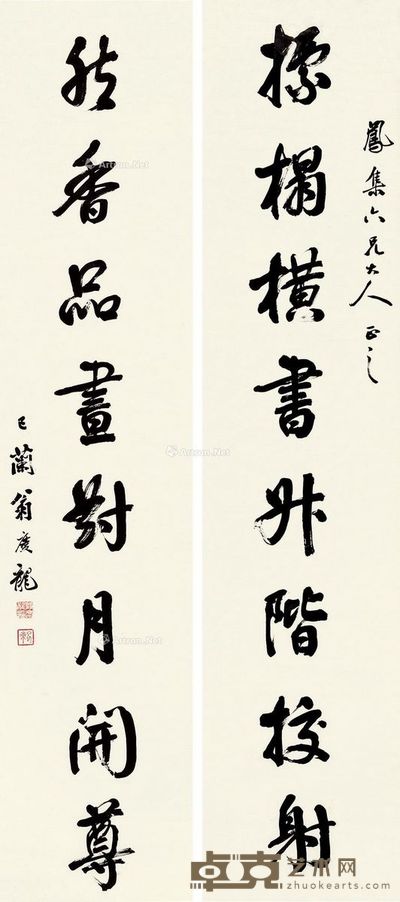 鳳集六兄大人正之
據榻橫書升階挍射
然香品畫對月開尊
已蘭翁慶龍
Artron.Net
Artron.Net
Artron.Net
卓克艺术网
zhuokearts.com